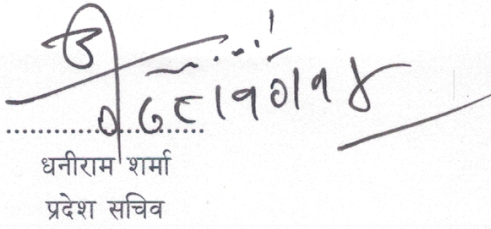 ०७८।१०।१४
....................
धनीराम शर्मा
प्रदेश सचिव